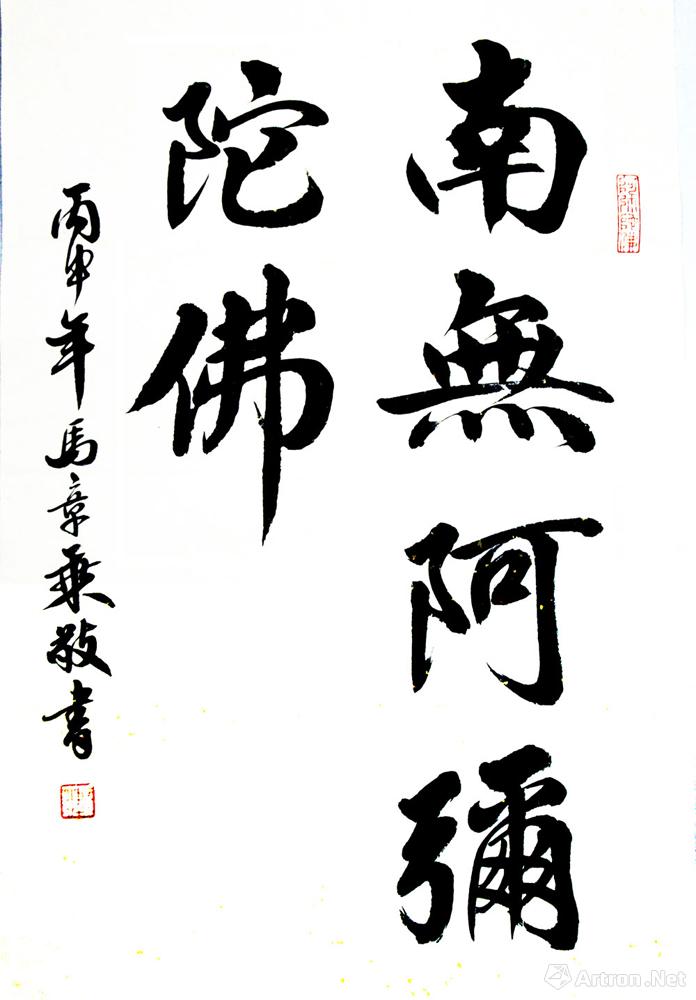 南無阿彌
陀佛
丙申年馬章乘敬書
Artron.Net